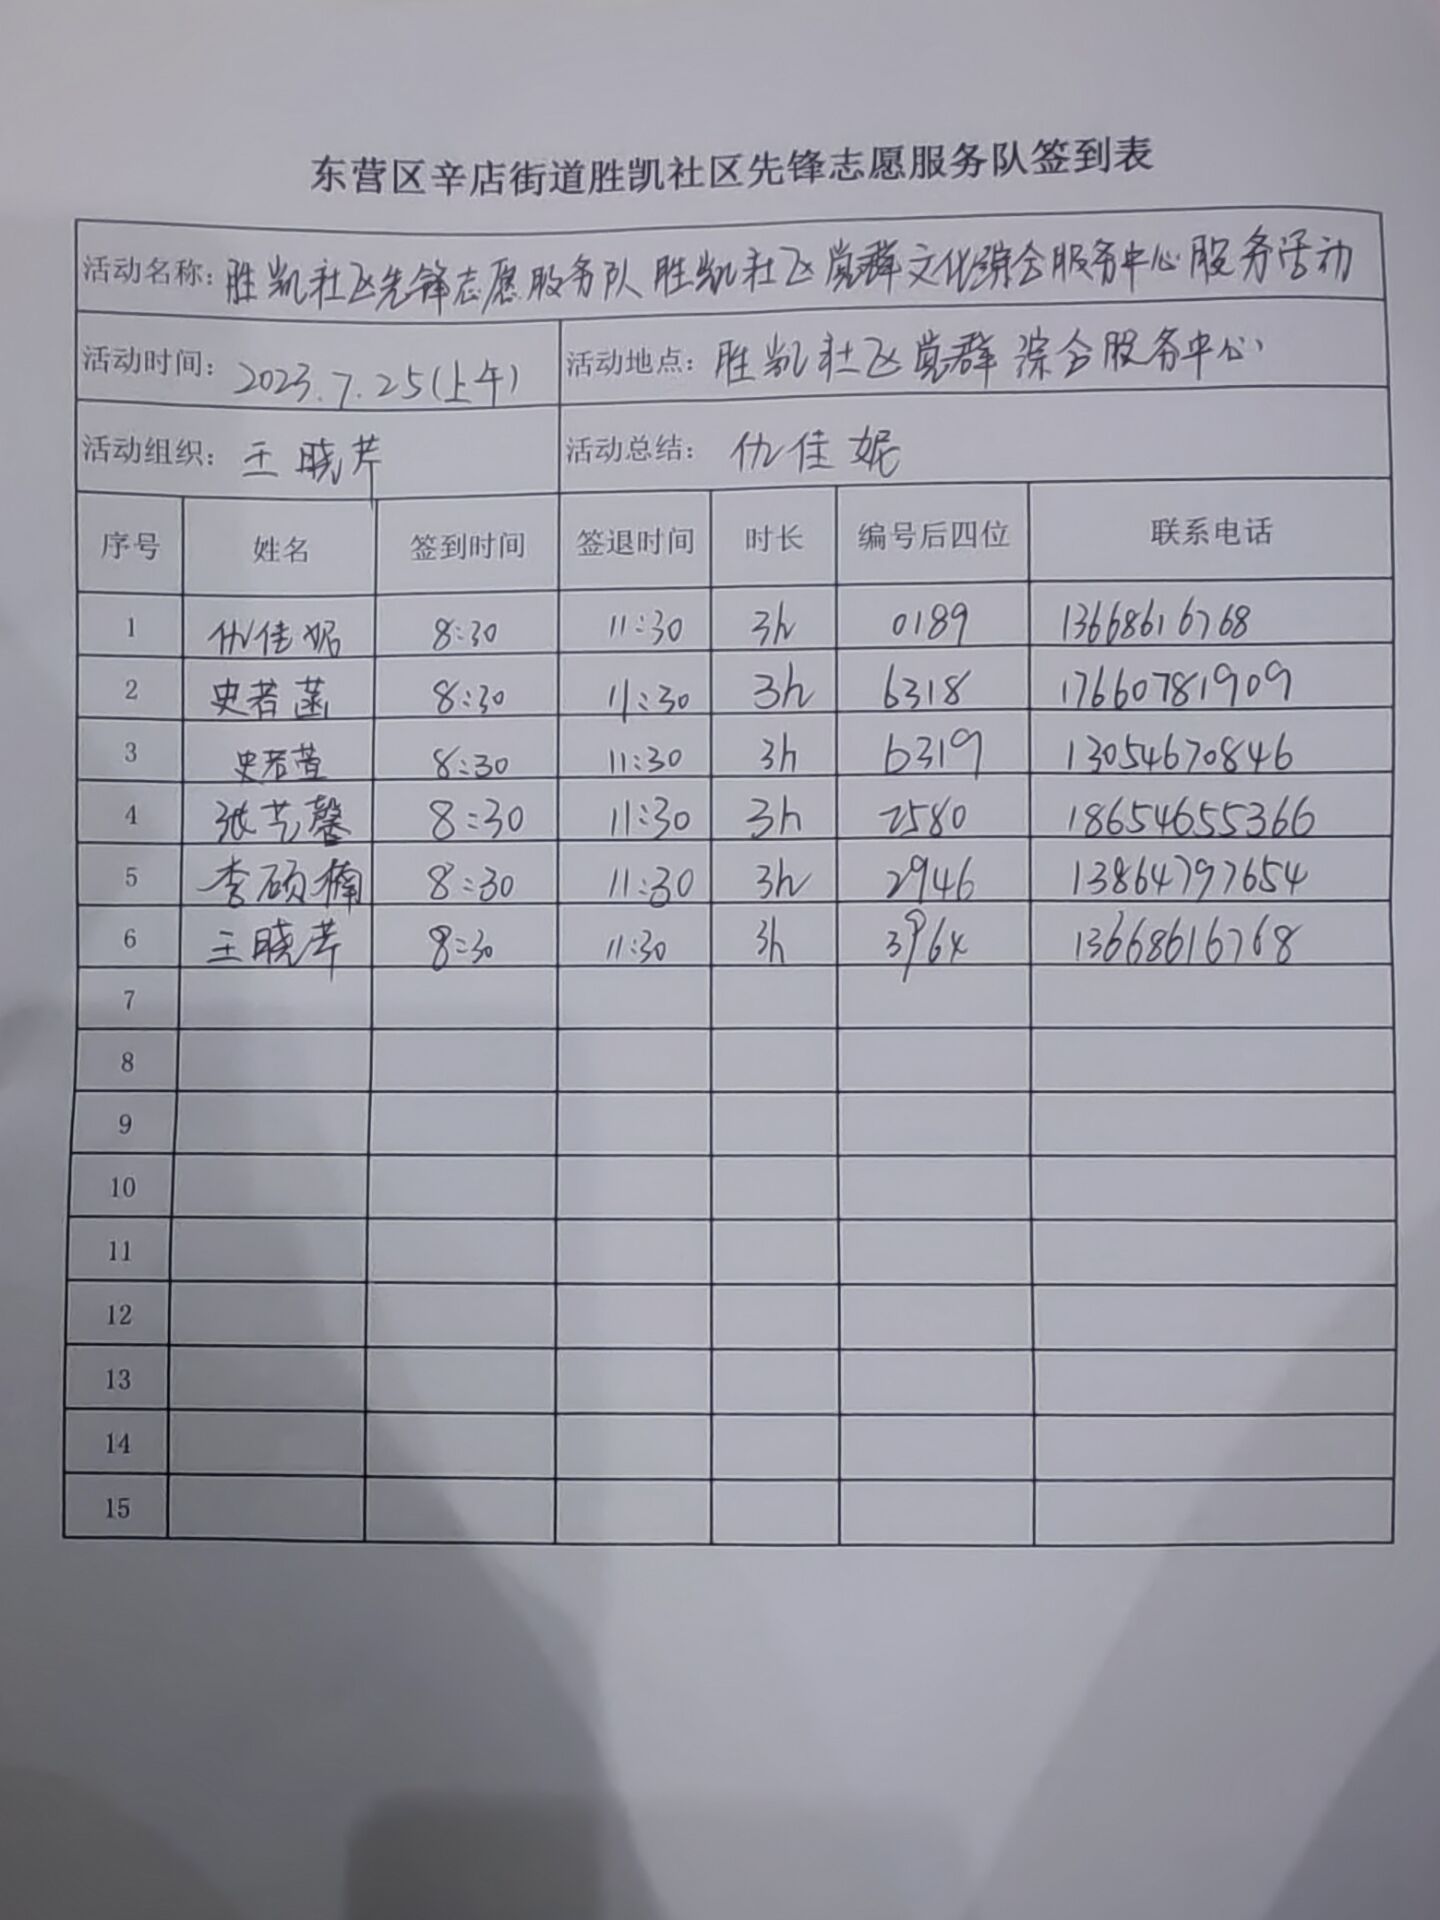 东营区辛店街道胜凯社区先锋志愿服务队签到表
活动名称：胜凯社区先锋志愿服务队胜凯社区党群文化综合服务中心服务活动
活动时间：2023.7.25(上午) 活动地点：胜凯社区党群综合服务中心
活动组织：王晓芹 活动总结：仇佳妮
序号 姓名 签到时间 签退时间 时长 编号后四位 联系电话
1 仇佳妮 8:30 11:30 3h 0189 13668616768
2 史若菡 8:30 11:30 3h 6318 17660781909
3 史若萱 8:30 11:30 3h 6319 13054670846
4 张艺馨 8:30 11:30 3h 2580 18654655366
5 李硕楠 8:30 11:30 3h 2946 13864797654
6 王晓芹 8:30 11:30 3h 3964 13668616768
7
8
9
10
11
12
13
14
15